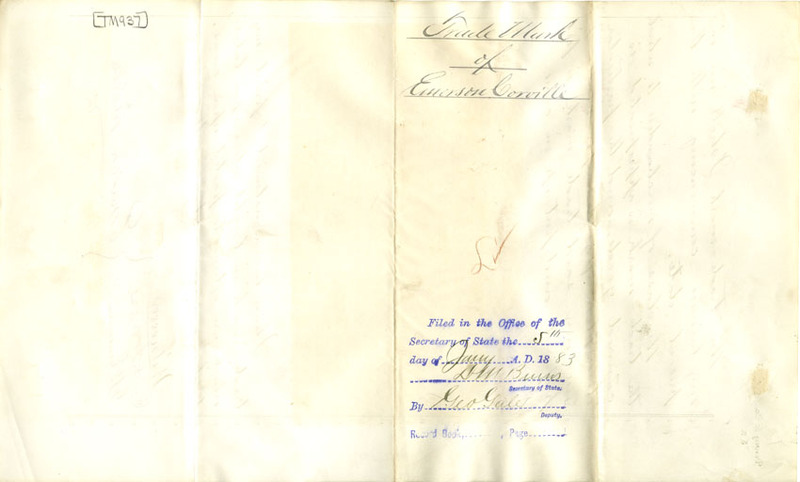 TM937
Trade Mark
of
Emerson Corville
Filed in the Office of the
Secretary of State the 5th
day of Jany A. D. 1883
D M Burns
Secretary of State.
By Geo
Deputy.
Record Book, , Page